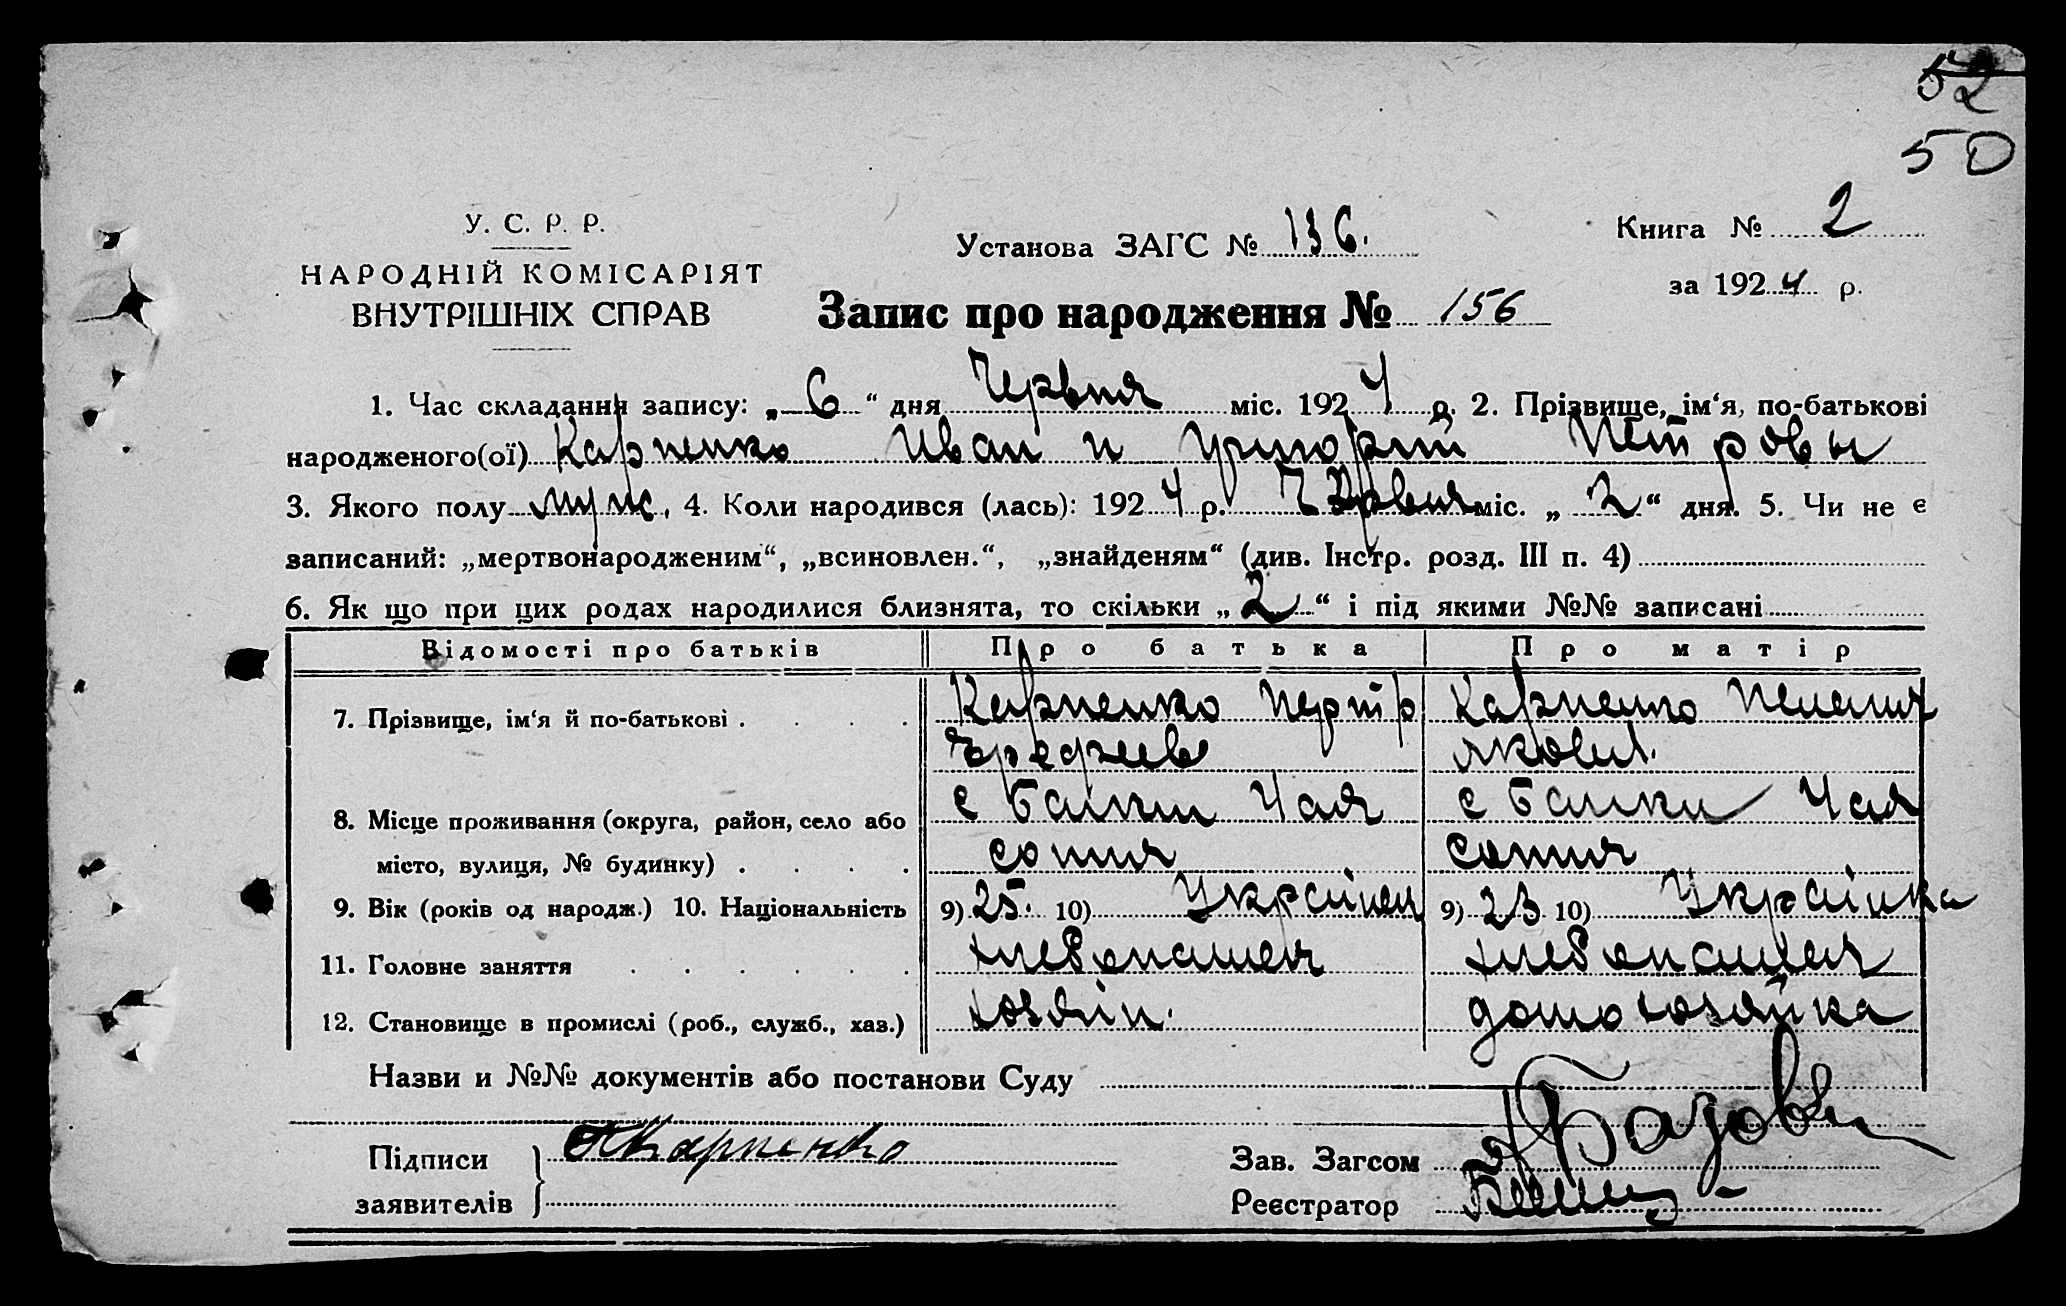 52
50
У. С. Р. Р.
НАРОДНІЙ КОМІСАРІЯТ
ВНУТРІШНІХ СПРАВ
Установа ЗАГС № 136.
Книга № 2
за 1924 р.
Запис про народження № 156
1. Час складання запису: „ 6 “ дня Червня міс. 1924 р. 2. Прізвище, ім‘я, по-батькові
народженого(ої) Карпенко Иван и Григорій Петровы
3. Якого полу муж. 4. Коли народився (лась): 1924 р. Червня міс. „ 2 “ дня. 5. Чи не є
записаний: „мертвонародженим“, „всиновлен.“, „знайденям“ (див. Інстр. розд. III п. 4)
6. Як що при цих родах народилися близнята, то скільки „ 2 “ і під якими №№ записані
Відомості про батьків Про батька Про матір
7. Прізвище, ім‘я й по-батькові . . . . Карпенко Петр Карпенко Пелагия
Яковл.
8. Місце проживання (округа, район, село або с Балки 4ая с Балки 4ая
місто, вулиця, № будинку) . . . . сотня сотня
9. Вік (років од народж.) 10. Національність 9) 25. 10) Украінец 9) 23 10) Украінка
11. Головне заняття . . . . . . хлебопашец хлебопашец
12. Становище в промислі (роб., служб., хаз.) хозяін. домохозяйка
Назви и №№ документів або постанови Суду
Підписи
заявителів
Карпенко
Зав. Загсом
Реєстратор